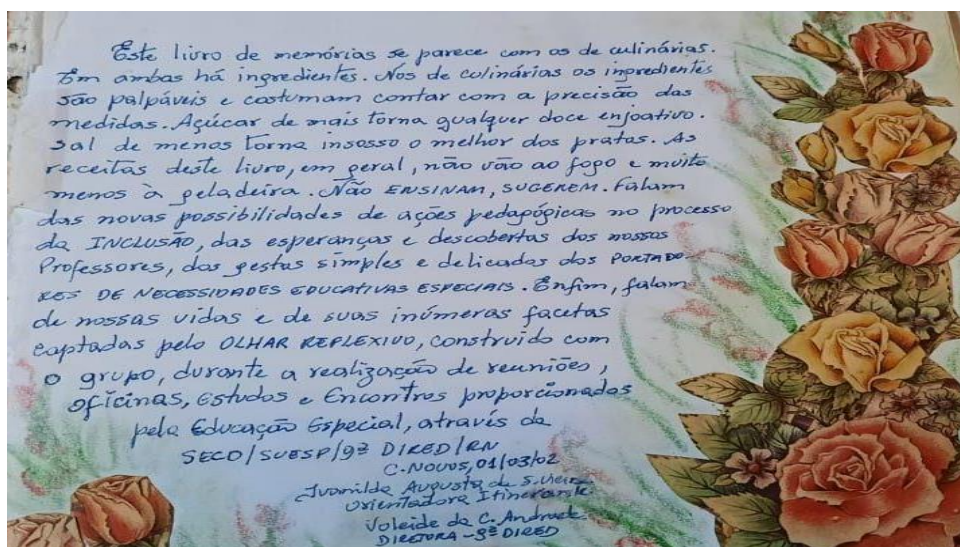 Este livro de memórias se parece com os de culinárias.
Em ambas há ingredientes. Nos de culinárias os ingredientes
são palpáveis e costumam contar com a precisão das
medidas. Açúcar de mais torna qualquer doce enjoativo.
Sal de menos torna insosso o melhor dos pratos. As
receitas deste livro, em geral, não vão ao fogo e muito
menos à geladeira. Não ENSINAM, SUGEREM. Falam
das novas possibilidades de ações pedagógicas no processo
da INCLUSÃO, das esperanças e descobertas dos nossos
Professores, dos gestos simples e delicados dos PORTADO-
RES DE NECESSIDADES EDUCATIVAS ESPECIAIS. Enfim, falam
de nossas vidas e de suas inúmeras facetas
captadas pelo OLHAR REFLEXIVO, construído com
o grupo, durante a realização de reuniões,
oficinas, Estudos e Encontros proporcionados
pela Educação Especial, através da
SECD/SUESP/9ª DIRED/RN
C. NOVOS, 01/03/02
Augusta de S. Vieira
Orientadora Itinerante
da C. Andrade
DIRETORA - 9ª DIRED